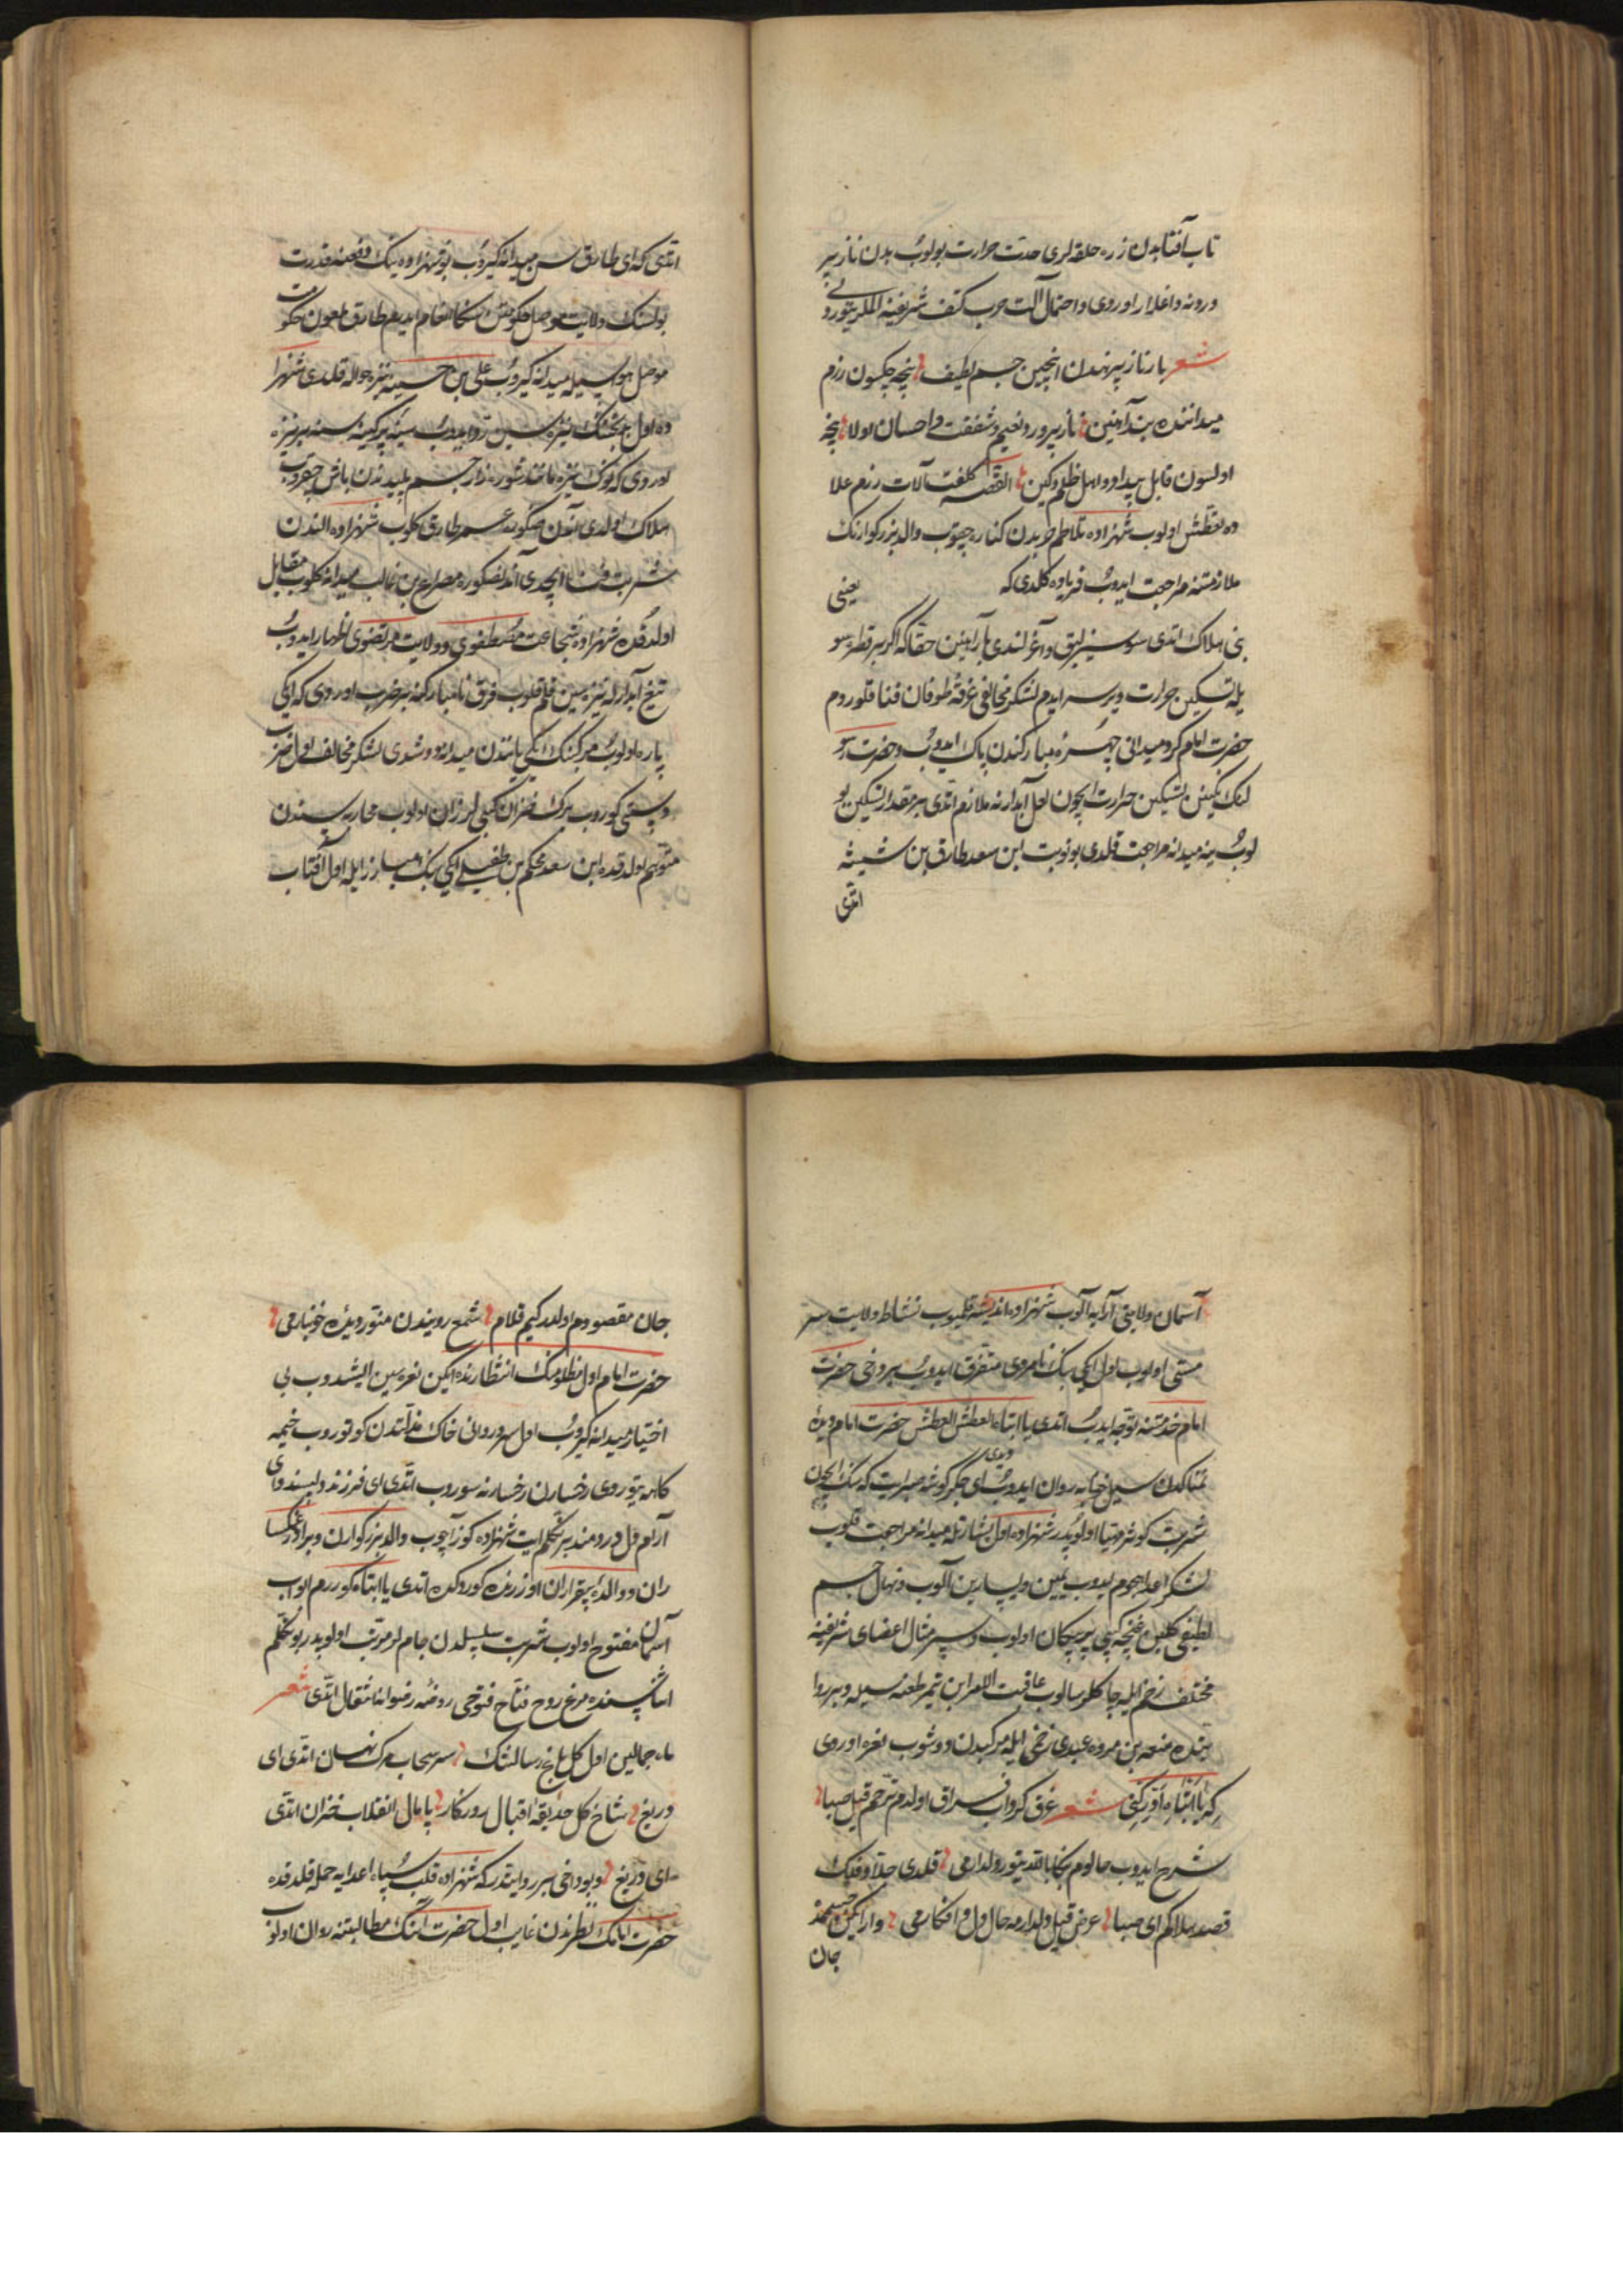 تاب آفتابدن زره حلقه لری حدت حرارت بولوب بدن نازپر
ورونه داغلار اوردی و احتمال آلت حرب کتف شریفینه الملر یتوردی
شعر بار ناز پیرهندن انچین جسم لطیف نیچه چکسون رزم
میداننده بند آهنین نازپرور نعیم و شفقت و احسان اولا نیچه
اولسون قابل بیداد و اهل ظلم و کین القصه کلفت آلات رزم علا
وه تعطش اولوب شهزاده تلاطم حربدن کناره چقوب والد بزرکوارنک
ملازمتنه مراجعت ایدوب فریاده کلدی که یعنی
بنی هلاک اتدی سوسیزلیق و آغرلندی بار آهنین حقا که اکر بر قطره سو
یله تسکین حرارت ویرسه ایدم لشکر مخالفی غرقه طوفان فنا قلوردم
حضرت امام کرد میدانی چهره مبارکندن پاک ایدوب و حضرت رسو
لنک نکینن تسکین حرارت ایچون لعل آبدارنه ملازم اتدی بر مقدار تسکین بو
لوب ینه میدانه مراجعت قلدی بو نوبت ابن سعد طارق بن شیثه
اتدی
اتدی که ای طارق سن میدانه کیروب بو شهزاده نینک دفعنه قدرت
بولسنک ولایت موصل حکومتن سکا انعام ایدیم طارق ملعون حکومت
موصل هوسیله میدانه کیروب علی بن حسینه نیزه حواله قلدی شهزا
ده اول بدبختنک نیزه سین رد ایدوب سینه پرکینه سنه بر نیزه
اوردی که نوک نیزه مانند شوره زار جسم پلیدندن باش چقروب
هلاک اولدی آندن صکره عمر طارق کلوب شهزاده الندن
شربت فنا ایچدی آندنصکره مصراع بن غالب میدانه کلوب مقابل
اولدقده شهزاده شجاعت مصطفوی و ولایت مرتضوی اظهار ایدوب
تیغ آبدار له نیزه سین قلم قلوب فرق نامبارکنه بر ضرب اوردی که ایکی
پاره اولوب مرکبنک ایکی یانندن میدانه دوشدی لشکر مخالف اول ضرب
دستی کوروب برک خزان کبی لرزان اولوب محاربه سندن
متوهم اولدقده ابن سعد محکم بن طفیلی ایکی بنک مبارز ایله اول آفتاب
آسمان ولایتی آرایه آلوب شهزاده اندیشه قلمیوب نشاط ولایت سر
مستی اولوب اول ایکی بنک نامردی متفرق ایدوب بیر دخی حضرت
امام خدمتنه توجه ایدب اتدی یا ابتاه العطش العطش حضرت امام دیده
نمناکدن سیل خونابه روان ایدوب دیدی ای جکر کوشه صبر ایت که سنک ایچون
شربت کوثر مهیا اولوبدر شهزاده اول بشارتله میدانه مراجعت قلوب
لشکر اعدا هجوم ایدوب یمین و یسارین آلوب و نهال جسم
لطیفی کلبن غنچه کبی پر پیکان اولوب و سپر مثال اعضای شریفینه
مختلف زخم ایله چاکلر سالوب عاقبت الامر ابن نمیر طعنه سیله و بر روا
یتده منعه بن مره عبدی زخمی ایله مرکبدن دوشوب نعره اوردی
که یا ابتاه ادرکنی شعر غرق کرداب فراق اولدم ترحم قیل صبا
شرح ایدوب حالوم بکا باقه یتور ولدارمی قلدی جلاد فلک
قصد هلاکم ای صبا عرض قیل ولدارمه حال دل افکارمی وار ایکن جسممده
جان
جان مقصودم اولدر کیم قلام شمع رویندن منور دیده خونبارمی
حضرت امام اول مظلومنک انتظارنده ایکن نعره سین ایشیدوب بی
اختیار میدانه کیروب اول سرو روانی خاک مذلتدن کوتوروب خیمه
کاهه یتوردی رخسارن رخسارنه سوروب اتدی ای فرزند دلبند و ای
آرام دل دردمند بر تکلم ایت شهزاده کوز اچوب والد بزرکوارن و برادر غمکسا
رن و والده بیقرارن اوزرنده کوردکده اتدی یا ابتاه کوررم ابواب
آسمان مفتوح اولوب شربت سلسبیلدن جام لر مرتب اولوبدر بو تکلم
اثناسنده مرغ روح فتاح فتوحی روضه رضوانه انتقال اتدی شعر
ماه جمالین اول کل باغ رسالتنک سر سحاب مرک نهان اتدی ای
دریغ شاخ کل حدیقه اقبال روزکار پامال انقلاب خزان اتدی
ای دریغ و بو دخی بیر روایتدر که شهزاده قلب سپاه اعدایه حمله قلدقده
حضرت امامنک نظرندن غایب اول حضرت آننک مطالبتنه روان اولوب